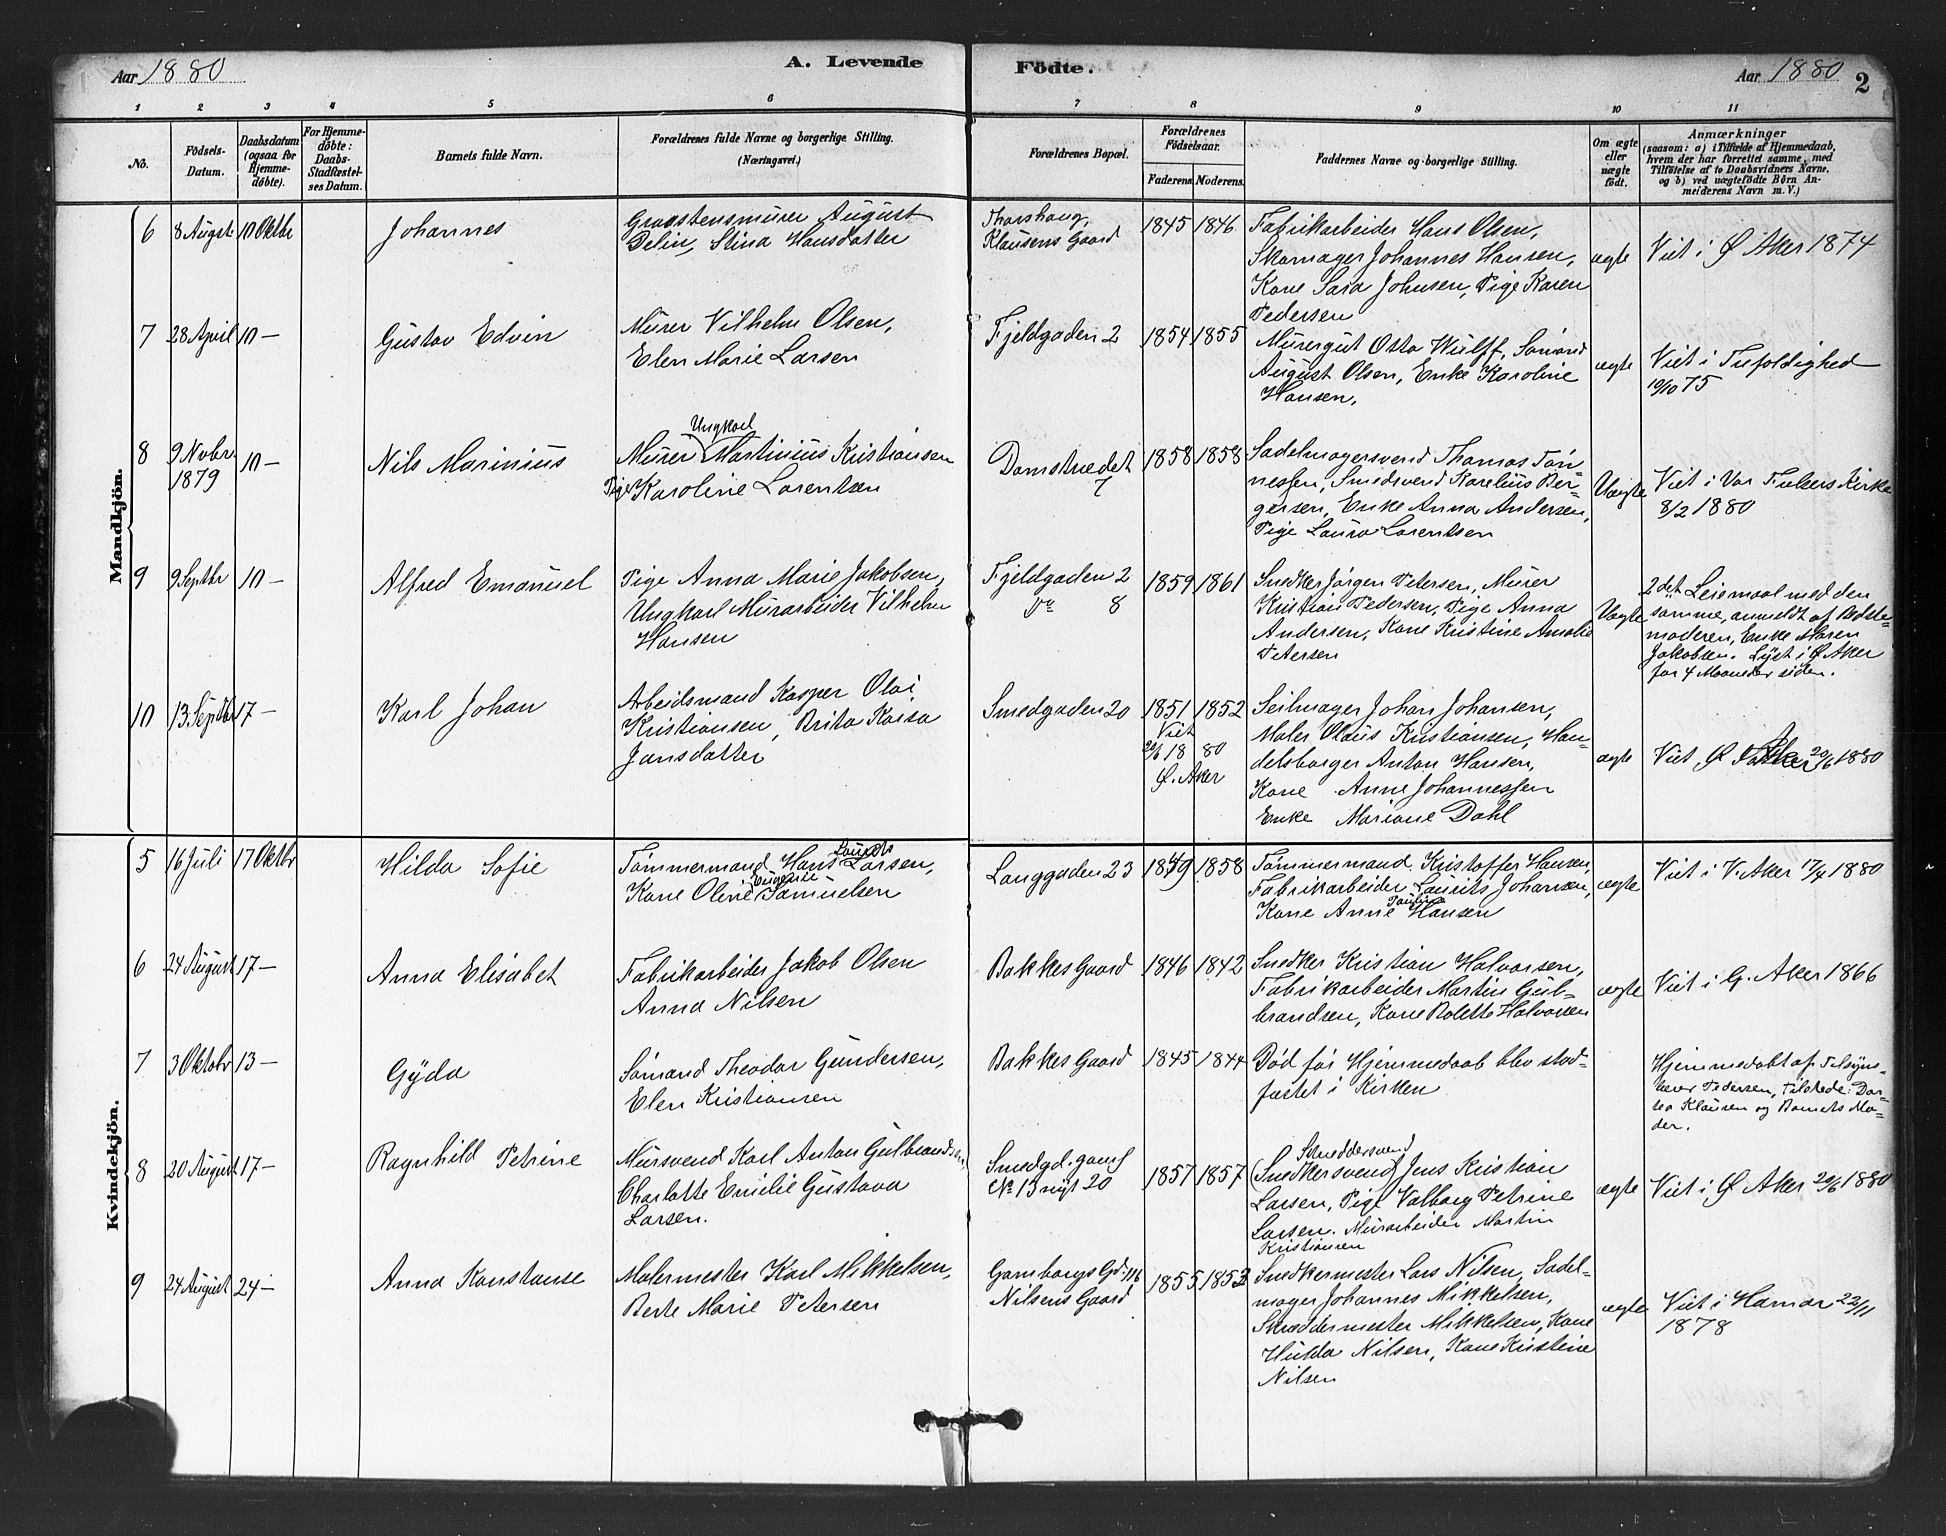 Aar 1880
A. Levende
Födte.
Aar 1880
2
1 2 3 4 5 6 7 8 9 10 11
No.
Födsels-
Datum.
Daabsdatum
(ogsaa for
Hjemme-
döbte).
For Hjemme-
döbte:
Daabs-
Stadfæstel-
ses Datum.
Barnets fulde Navn.
Forældrenes fulde Navne og borgerlige Stilling.
(Næringsvei.)
Forældrenes Bopæl.
Forældrenes
Födselsaar.
Faderens. Moderens.
Faddernes Navne og borgerlige Stilling.
Om ægte
eller
uægte
født.
Anmærkninger
(saasom: a) i Tilfælde af Hjemmedaab,
hvem der har forrettet samme, med
Tilföielse af to Daabsvidners Navne.
og b) ved uægtefödte Börn An-
meiderens Navn m.V.)
Mandkjön.
6 8 August 10 Oktbr
Johannes
Graastensmurer August
Delin, Stina Hansdatter
Thorshaug,
Klausens Gaard
1845 1846
Fabrikarbeider Hans Olsen,
Skomager Johannes Hansen,
Kone Sara Johnsen, Pige Karen
Pedersen
ægte
Viet i Ø Aker 1874
7 28 April 10 —
Gustav Edvin
Murer Vilhelm Olsen,
Elen Marie Larsen
Fjeldgaden 2
1854 1855
Murergut Otto Wulff, Sömand
August Olsen, Enke Karoline
Hansen,
ægte
Viet i Trefoldighed
10/10 75
8 9 Nvbr 10 —
1879
Nils Marinius
Ungkarl
Murer Martinius Kristiansen
Pige Karoline Lorentsen
Damstrædet
7
1858 1858
Sadelmagersvend Thomas Tön-
nessen, Smedsvend Karelius Ber-
gersen, Enke Anna Andersen,
Pige Laura Lorentsen
Uægte
Viet i Vor Frelsers Kirke
8/2 1880
9 9 Septbr 10 —
Alfred Emanuel
Pige Anna Marie Jakobsen,
Ungkarl Murarbeider Vilhelm
Hansen
Fjeldgaden 2
Do 8
1859 1861
Snedker Jörgen Petersen, Murer
Kristian Pedersen, Pige Anna
Andersen, Kone Kristine Amalie
Petersen
Uægte
2det Leiemaal med den
samme, anmeldt af Bedste-
moderen, Enke Maren
Jakobsen. Lyst i Ø Aker
for 4 Maaneder siden.
10 13. Septbr 17 —
Karl Johan
Arbeidsmand Kasper Olai
Kristiansen, Brita Kaisa
Jansdatter
Smedgaden 20
1851 1852
Viet
20/6 18 80
Ø. Aker
Seilmager Johan Johansen,
Maler Olaus Kristiansen, Han-
delsborger Anton Hansen,
Kone Anne Johannessen
Enke Mariane Dahl
ægte
Viet, Ø Aker 20/6 1880
Kvindekjön.
5 16 Juli 17 Oktbr
Hilda Sofie
Laurits
Tömmermand Hans Larsen,
Eugenie
Kone Oline Samuelsen
Langgaden 23
1849 1858
Tömmermand Kristoffer Hansen,
Fabrikarbeider Laurits Johansen,
Kone Anne Pauline Hansen
ægte
Viet i V. Aker 17/4 1880
6 24 August 17 —
Anna Elisabet
Fabrikarbeider Jakob Olsen
Anna Nilsen
Bakkes Gaard
1846 1842
Snedker Kristian Halvorsen,
Fabrikarbeider Martin Gul-
brandsen, Kone Bolette Halvorsen
ægte
Viet i G. Aker 1866
7 3 Oktobr 13 —
Gyda
Sömand Theodor Gundersen,
Elen Kristiansen
Bakkes Gaard
1845 1844
Död för Hjemmedaab blev stad-
fæstet i Kirken
Hjemmedöbt af Tilsyns-
haver Pedersen, Tilstede: Dor-
tea Klausen og Barnets Mo-
der.
8 20 August 17 —
Ragnhild Petrine
Mursvend Karl Anton Gulbrandsen,
Charlotte Emilie Gustava
Larsen.
Smedgd. gaml
No 13 nyt 20
1857 1857
Skræddersvend
(Snedkersvend) Jens Kristian
Larsen, Pige Valborg Petrine
Larsen. Murarbeider Martin
Kristiansen
ægte
Viet i Ø Aker 20/6 1880
9 24 August 24 —
Anna Konstanse
Malermester Karl Mikkelsen,
Berte Marie Petersen
Gamborgs Gd. 116
Nilsens Gaard
1855 1853
Snedkermester Lars Nilsen, Sadel-
mager Johannes Mikkelsen,
Skræddermester Mikkelsen, Kone
Hulda Nilsen, Kone Kristine
Nilsen
ægte
Viet i Hamar 22/11
1878